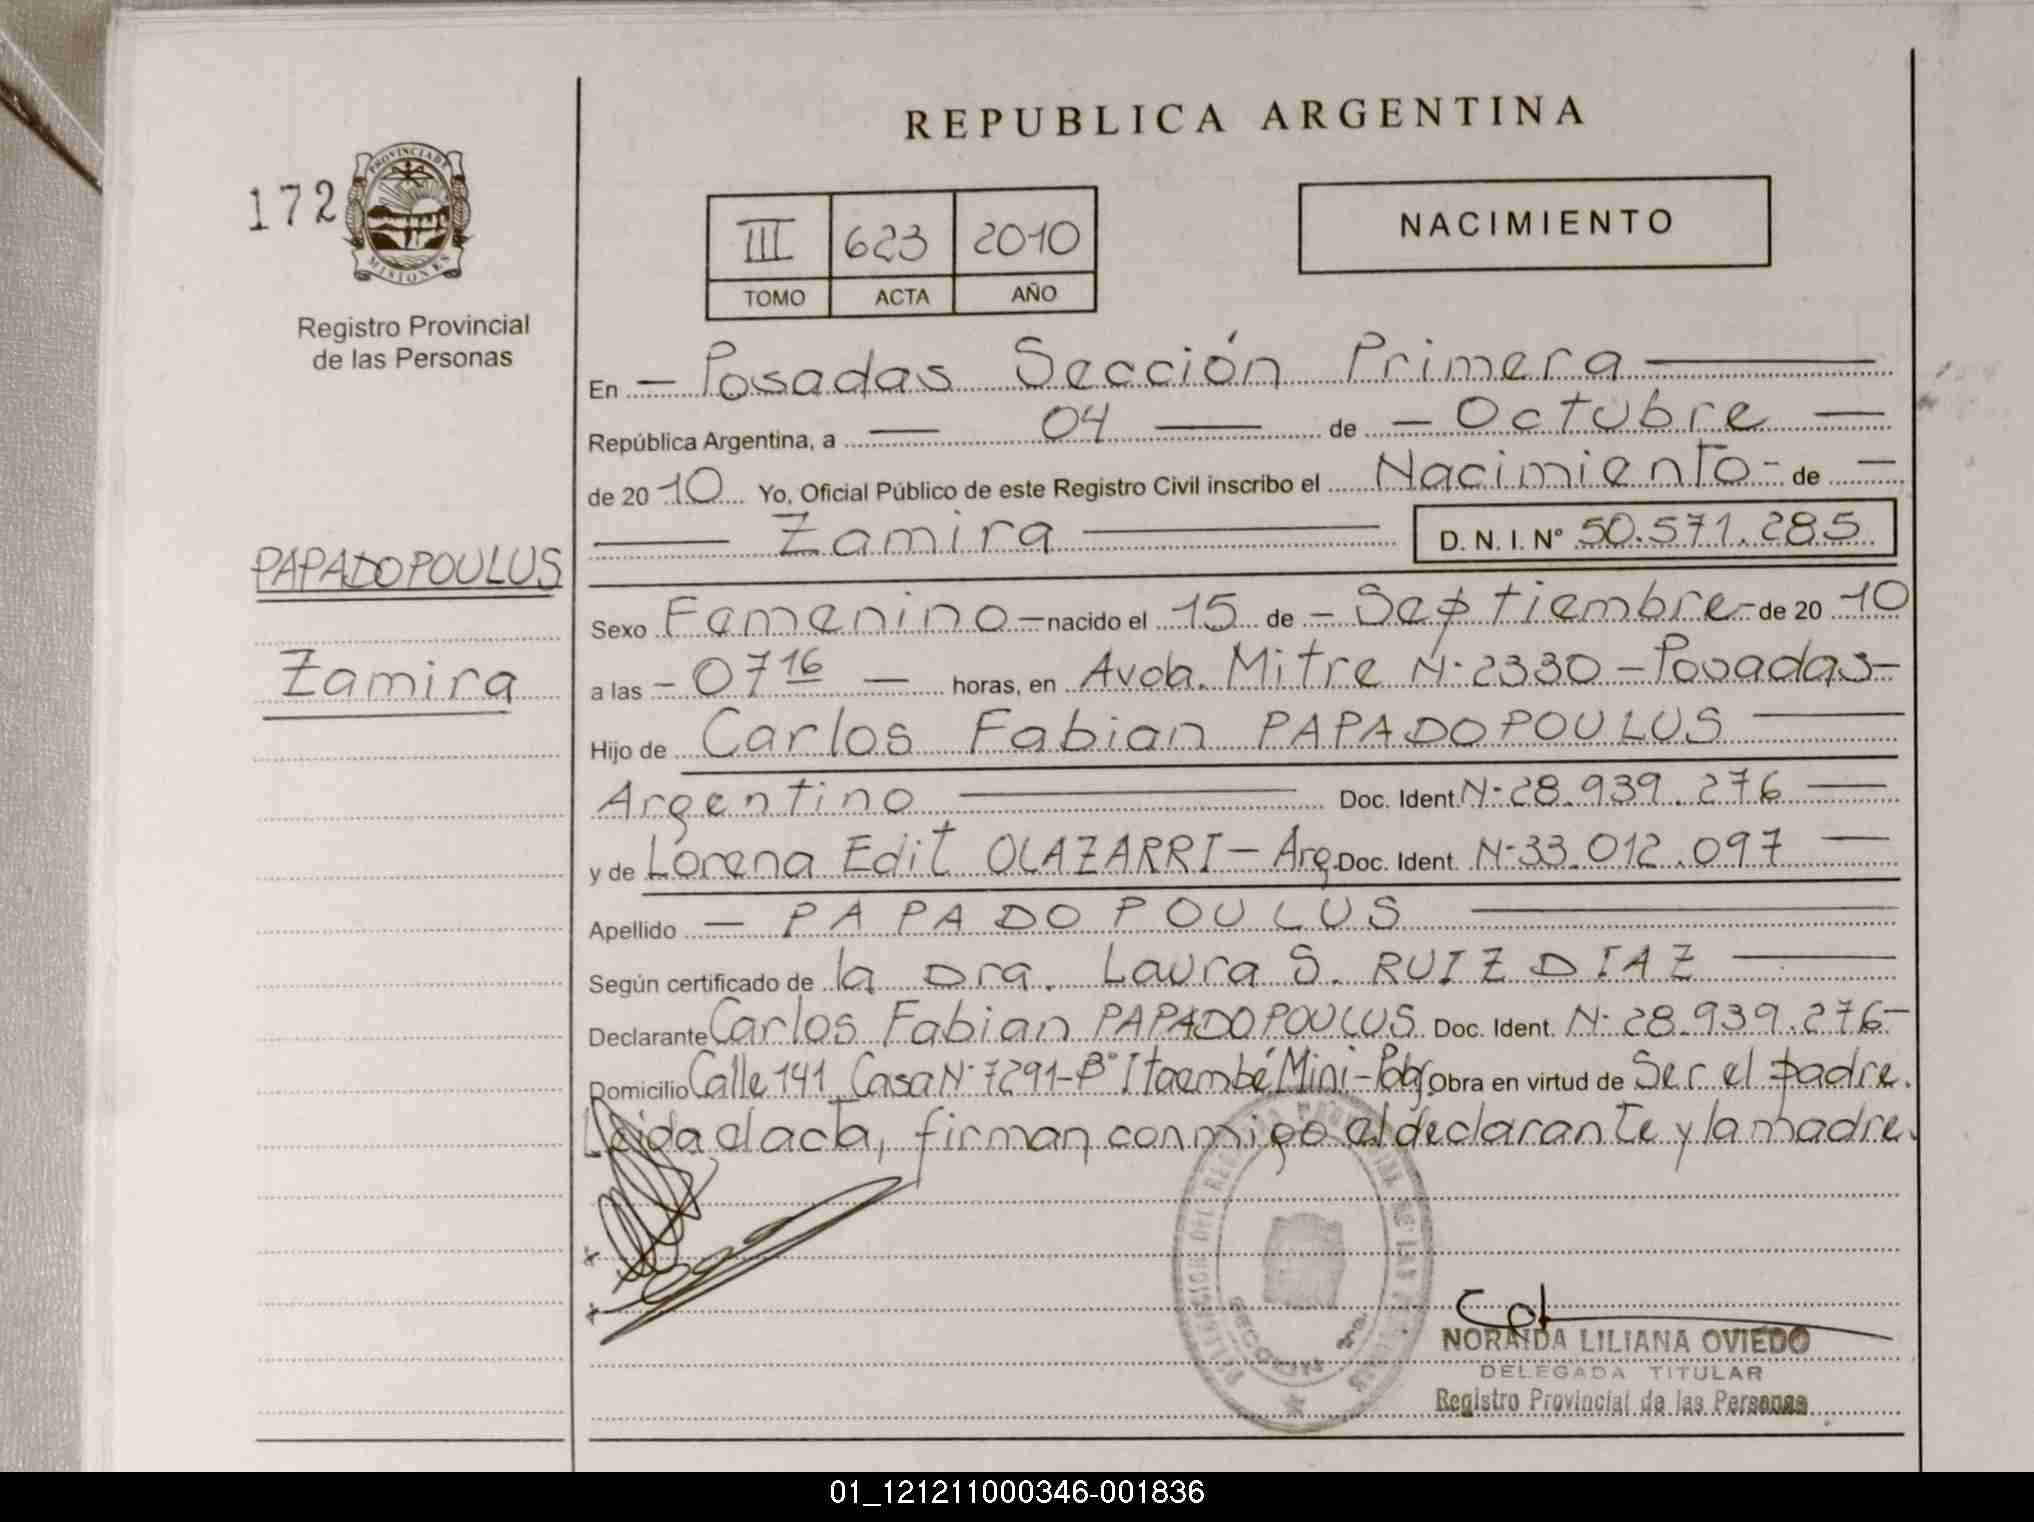 REPUBLICA ARGENTINA
172
PROVINCIA DE
MISIONES
Registro Provincial
de las Personas
III 623 2010
TOMO ACTA AÑO
NACIMIENTO
En — Posadas Sección Primera —
República Argentina, a — 04 — de — Octubre —
de 20 10 Yo, Oficial Público de este Registro Civil inscribo el Nacimiento - de —
— Zamira — D. N. I. N° 50.571.285
PAPADOPOULUS
Zamira
Sexo Femenino — nacido el 15 de — Septiembre - de 20 10
a las - 07 16 — horas, en Avda. Mitre N. 2330 - Posadas -
Hijo de Carlos Fabian PAPADOPOULUS —
Argentino — Doc. Ident. N. 28.939.276 —
y de Lorena Edit OLAZARRI - Arg. Doc. Ident. N. 33.012.097 —
Apellido — PAPADOPOULUS —
Según certificado de la Dra. Laura S. RUIZ DIAZ —
Declarante Carlos Fabian PAPADOPOULUS Doc. Ident. N. 28.939.276 -
Domicilio Calle 141 Casa N. 7291 - B° Itaembé Mini - Obra en virtud de Ser el padre.
Leida el acta, firman conmigo el declarante y la madre.
NORAIDA LILIANA OVIEDO
DELEGADA TITULAR
Registro Provincial de las Personas
01_121211000346-001836